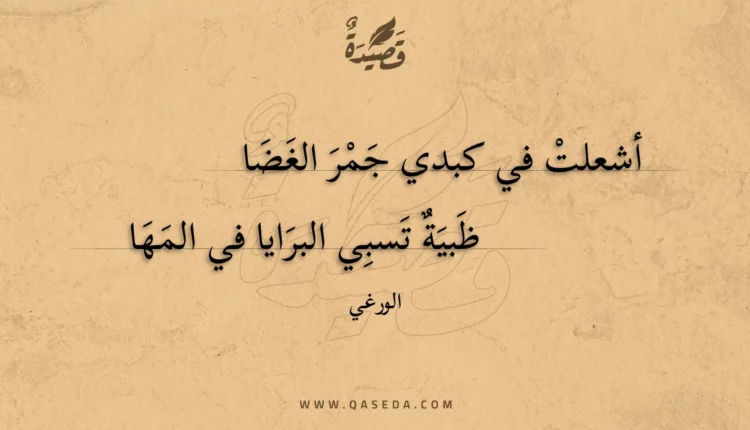 قَصِيدَةٌ
أشعلتْ في كبدي جَمْرَ الغَضَا
ظَبيَةٌ تَسبِي البرَايا في المَهَا
الورغي
WWW.QASEDA.COM